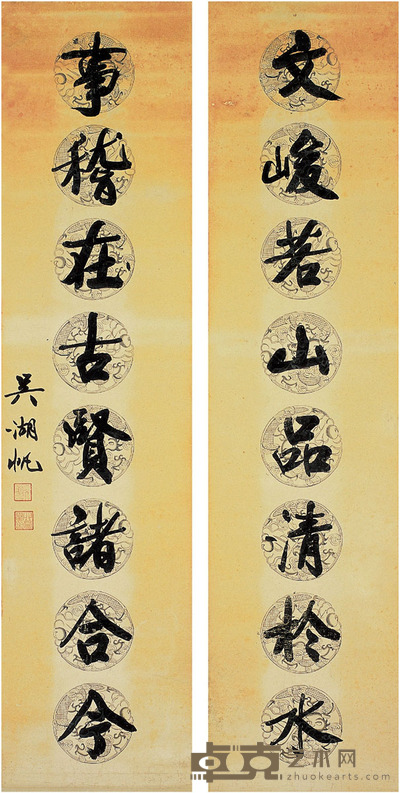 文峻若山品清於水
事稽在古賢諸合今
吴湖帆
卓克艺术网
zhuokearts.com